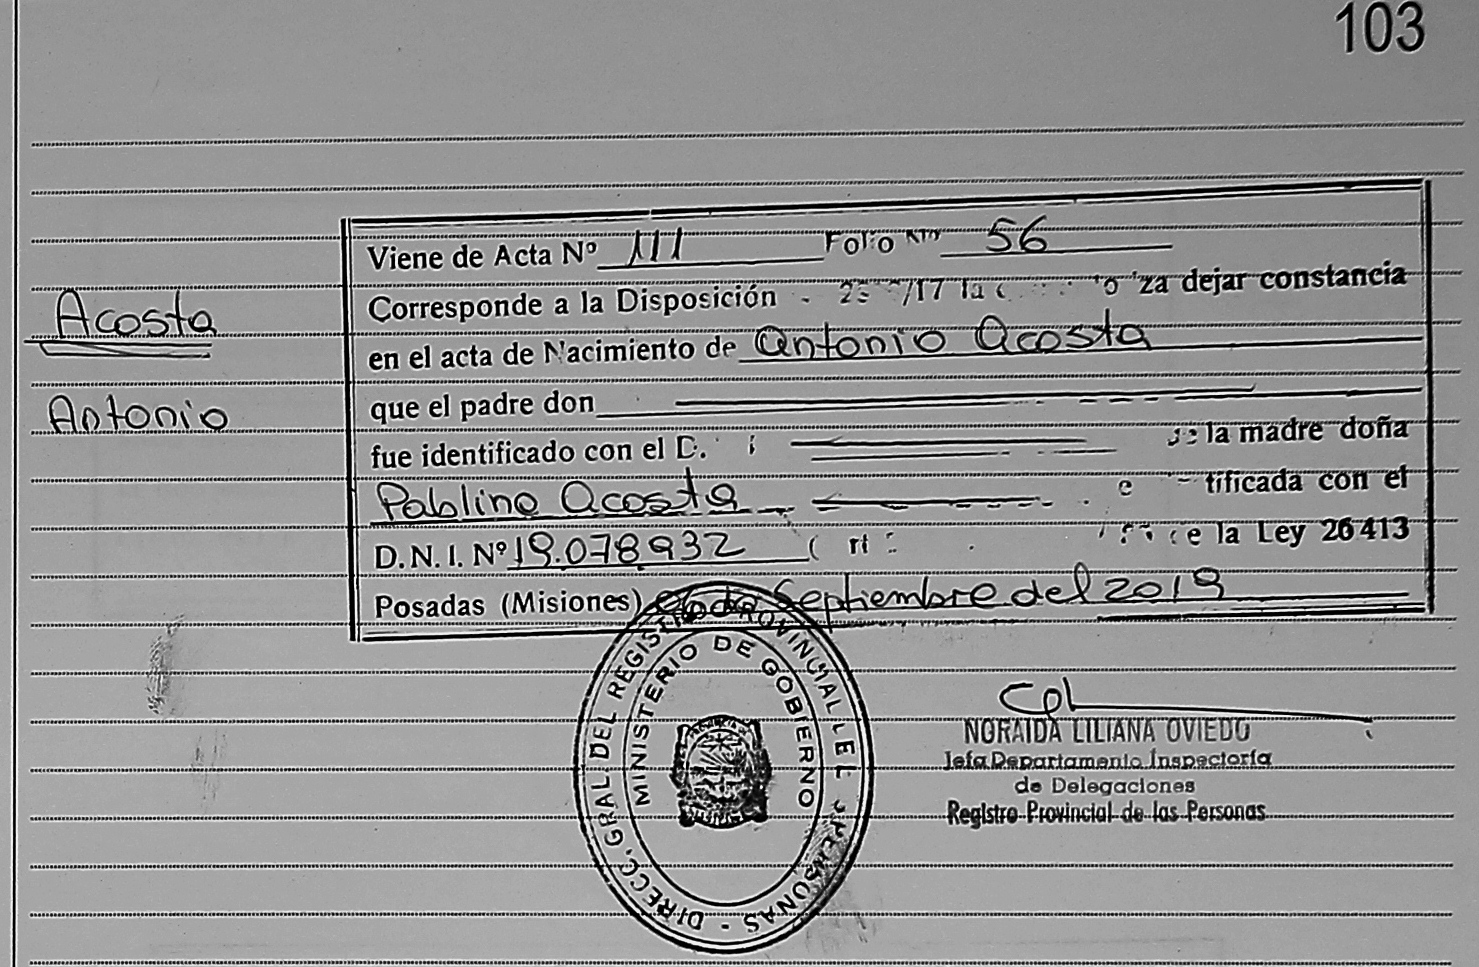 103
Acosta
Antonio
Viene de Acta Nº 111 Folio Nº 56
Corresponde a la Disposición /17 dejar constancia
en el acta de Nacimiento de Antonio Acosta
que el padre don
fue identificado con el D. la madre doña
Pablina Acosta tificada con el
D.N.I. Nº 19.078.932 la Ley 26413
Posadas (Misiones) de Septiembre del 2019
DIRECC. GRAL. DEL REGISTRO PROVINCIAL DE PERSONAS
MINISTERIO DE GOBIERNO
NORAIDA LILIANA OVIEDO
Jefa Departamento Inspectoría
de Delegaciones
Registro Provincial de las Personas